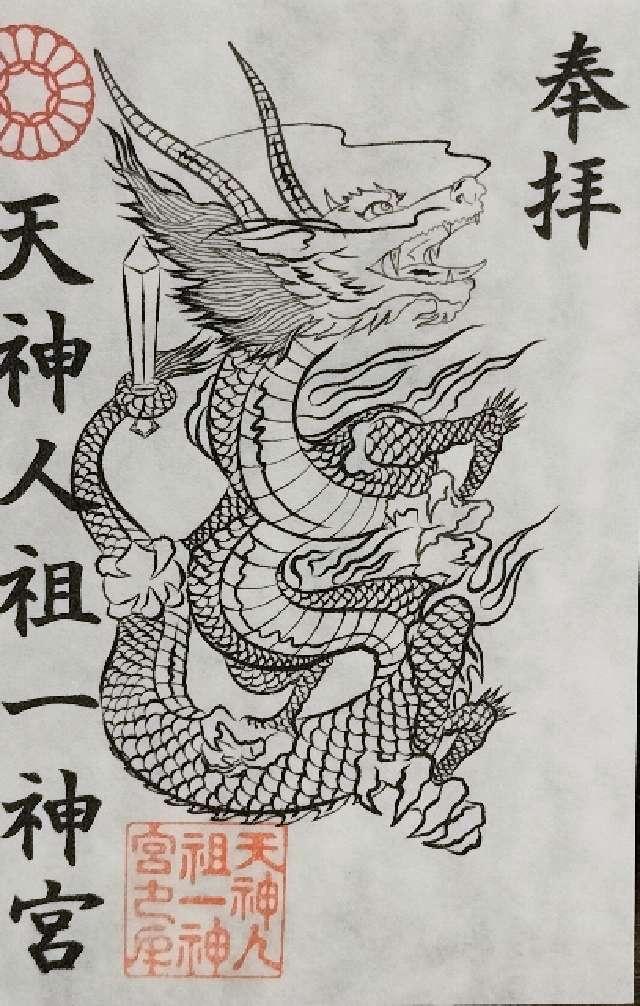 奉拝
天神人祖一神宮
天神人
祖一神
宮